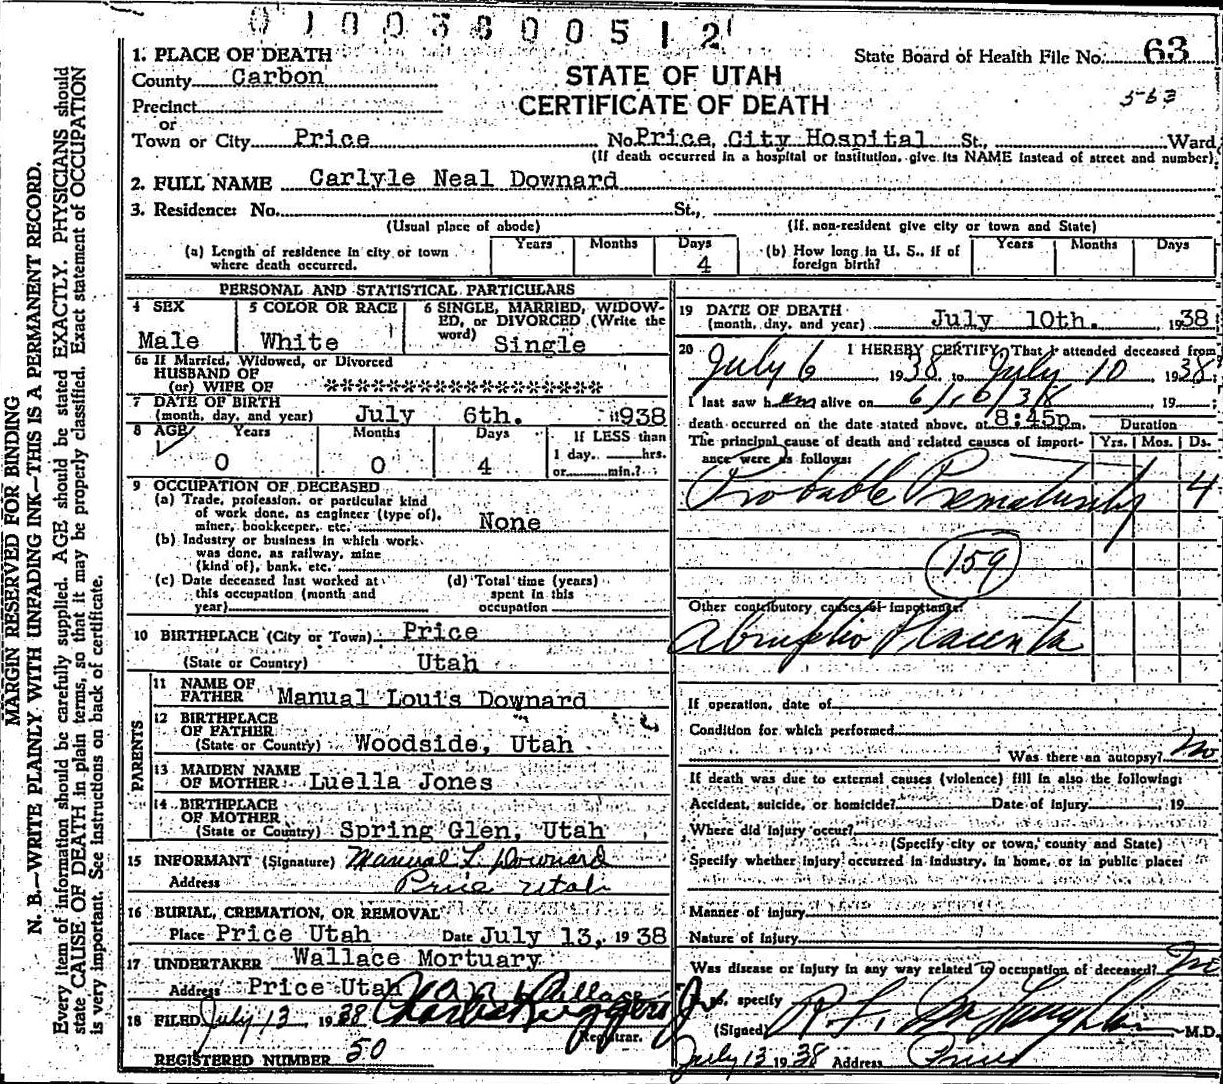 01003800512
1. PLACE OF DEATH
County Carbon
State Board of Health File No. 63
STATE OF UTAH
CERTIFICATE OF DEATH
563
Precinct
or
Town or City Price No. Price City Hospital St., Ward
(If death occurred in a hospital or institution, give its NAME instead of street and number).
2. FULL NAME Carlyle Neal Downard
3. Residence: No. St.,
(Usual place of abode) (If non-resident give city or town and State)
(a) Length of residence in city or town where death occurred. Years Months Days 4
(b) How long in U. S., if of foreign birth? Years Months Days
PERSONAL AND STATISTICAL PARTICULARS
4 SEX Male
5 COLOR OR RACE White
6 SINGLE, MARRIED, WIDOWED, or DIVORCED (Write the word) Single
6a If Married, Widowed, or Divorced
HUSBAND OF
(or) WIFE OF **********************
7 DATE OF BIRTH
(month, day, and year) July 6th. 1938
8 AGE Years 0 Months 0 Days 4 If LESS than 1 day. hrs. or min.?
9 OCCUPATION OF DECEASED
(a) Trade, profession, or particular kind
of work done, as engineer (type of),
miner, bookkeeper, etc. None
(b) Industry or business in which work
was done, as railway, mine
(kind of), bank, etc.
(c) Date deceased last worked at
this occupation (month and
year)
(d) Total time (years)
spent in this
occupation
10 BIRTHPLACE (City or Town) Price
(State or Country) Utah
PARENTS
11 NAME OF
FATHER Manual Louis Downard
12 BIRTHPLACE
OF FATHER
(State or Country) Woodside, Utah
13 MAIDEN NAME
OF MOTHER Luella Jones
14 BIRTHPLACE
OF MOTHER
(State or Country) Spring Glen, Utah
15 INFORMANT (Signature) Manual L. Downard
Address Price Utah
16 BURIAL, CREMATION, OR REMOVAL
Place Price Utah Date July 13, 1938
17 UNDERTAKER Wallace Mortuary
Address Price Utah
18 FILED July 13 1938
Registrar.
REGISTERED NUMBER 50
19 DATE OF DEATH
(month, day, and year) July 10th. 1938
20 I HEREBY CERTIFY, That I attended deceased from
July 6 1938 to July 10 1938
I last saw h alive on 19
death occurred on the date stated above, at 8:45p m. Duration
The principal cause of death and related causes of importance were as follows: Yrs. Mos. Ds.
Probable Prematurity 4
159
Other contributory causes of importance:
Abruptio Placenta
If operation, date of
Condition for which performed
Was there an autopsy? No
If death was due to external causes (violence) fill in also the following:
Accident, suicide, or homicide? Date of injury 19
Where did injury occur?
(Specify city or town, county and State)
Specify whether injury occurred in industry, in home, or in public place:
Manner of injury
Nature of injury
Was disease or injury in any way related to occupation of deceased? No
specify
(Signed) M.D.
July 13 1938 Address Price
MARGIN RESERVED FOR BINDING
N. B.—WRITE PLAINLY WITH UNFADING INK—THIS IS A PERMANENT RECORD.
Every item of information should be carefully supplied. AGE should be stated EXACTLY. PHYSICIANS should
state CAUSE OF DEATH in plain terms, so that it may be properly classified. Exact statement of OCCUPATION
is very important. See instructions on back of certificate.